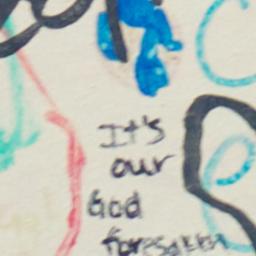 It's
our
God
foresaken